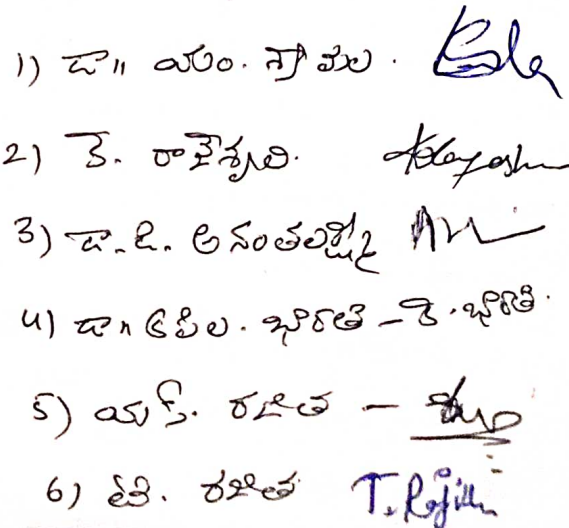 1) డా॥ యం. శ్యామల.
2) కె. రాజేశ్వరి.
3) డా. డి. అనంతలక్ష్మి
4) డా॥ కపిల. భారతి - కె. భారతి.
5) యస్. రజిత -
6) టి. రజిత T. Rajitha